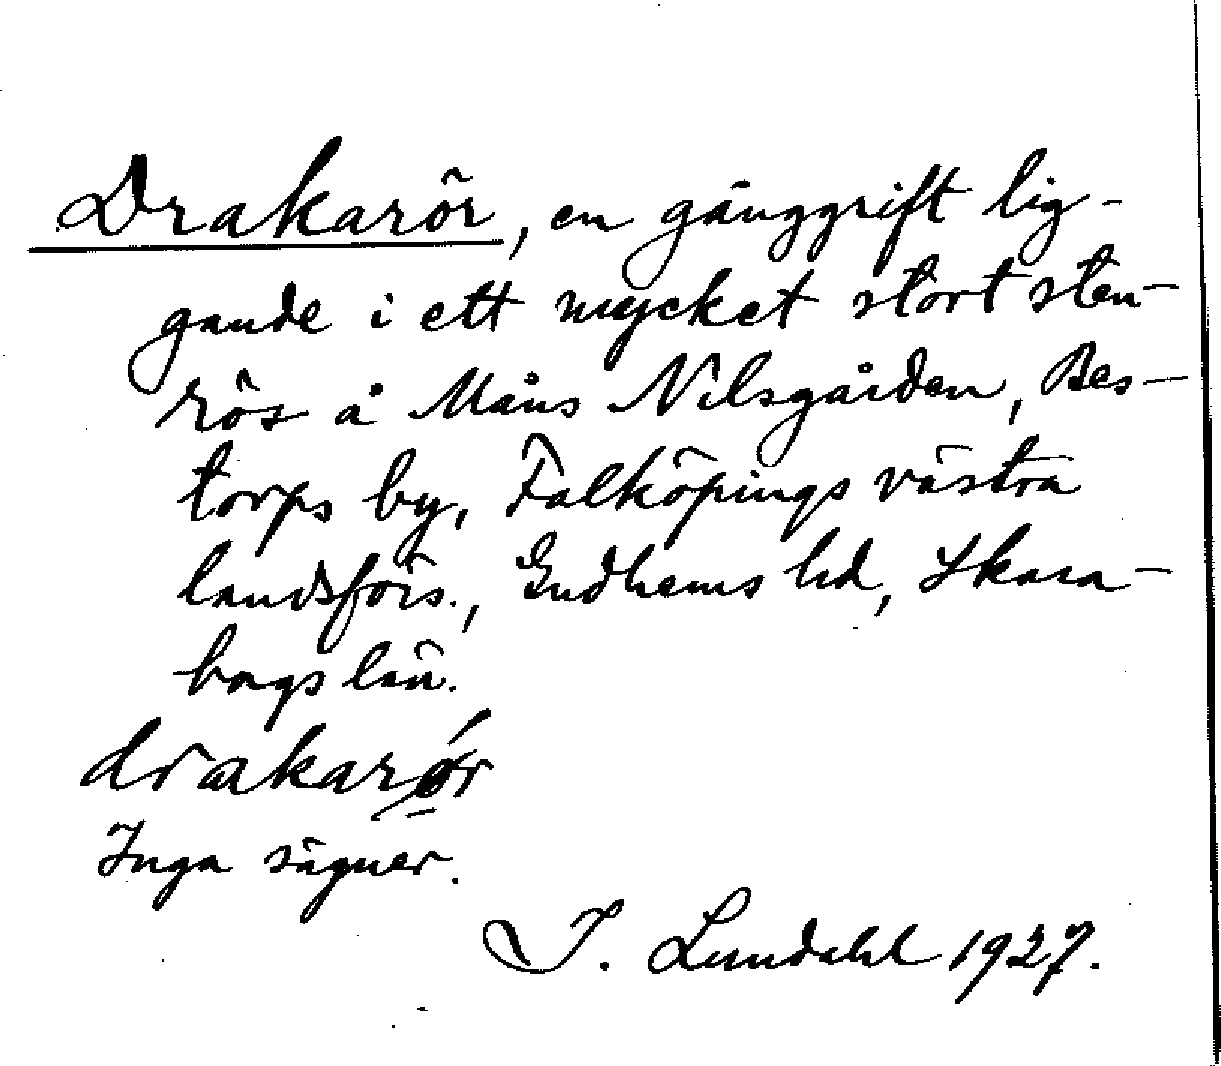 Drakarör, en gånggrift lig-
gande i ett mycket stort sten-
rös å Måns Nilsgården, Bes-
torps by, Falköpings västra
landsförs., Gudhems hd, Skara-
borgs län.
drakarǿr
Inga sägner.
I. Lundahl 1927.